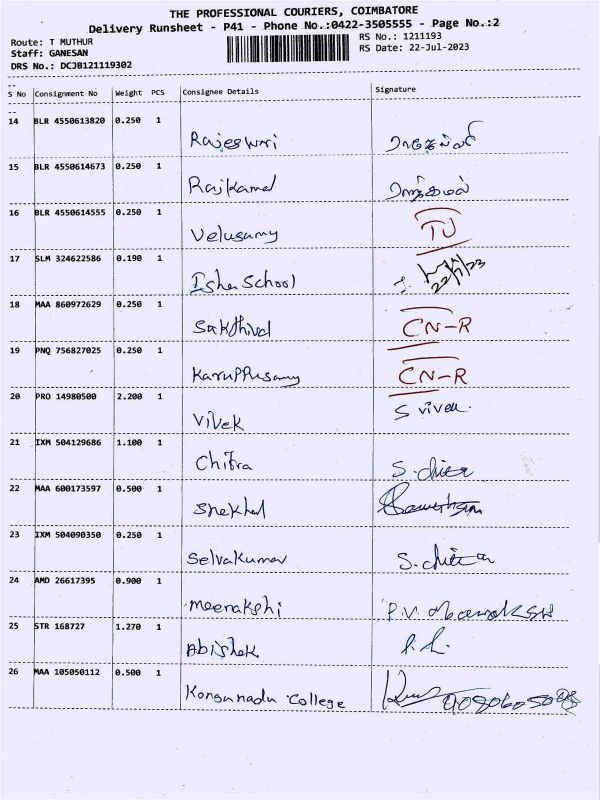 THE PROFESSIONAL COURIERS, COIMBATORE
Delivery Runsheet - P41 - Phone No.:0422-3505555 - Page No.:2
Route: T MUTHUR
RS No.: 1211193
Staff: GANESAN
RS Date: 22-Jul-2023
DRS No.: DCJB121119302
--
S No Consignment No Weight PCS Consignee Details Signature
--
14 BLR 4550613820 0.250 1
Rajeswari ராஜேஸ்வரி
15 BLR 4550614673 0.250 1
Rajkamal ராஜ்கமல்
16 BLR 4550614555 0.250 1
Velusamy TU
17 SLM 324622586 0.190 1
Isha School 22/7/23
18 MAA 860972629 0.250 1
Sakthivel CN-R
19 PNQ 756827025 0.250 1
Karuppusamy CN-R
20 PRO 14980500 2.200 1
Vivek S vivek
21 IXM 504129686 1.100 1
Chitra S. chitra
22 MAA 600173597 0.500 1
Shekhal
23 IXM 504090350 0.250 1
Selvakumar S. chitra
24 AMD 26617395 0.900 1
Meenakshi P.V.
25 STR 168727 1.270 1
Abishek
26 MAA 105050112 0.500 1
Kongunadu College